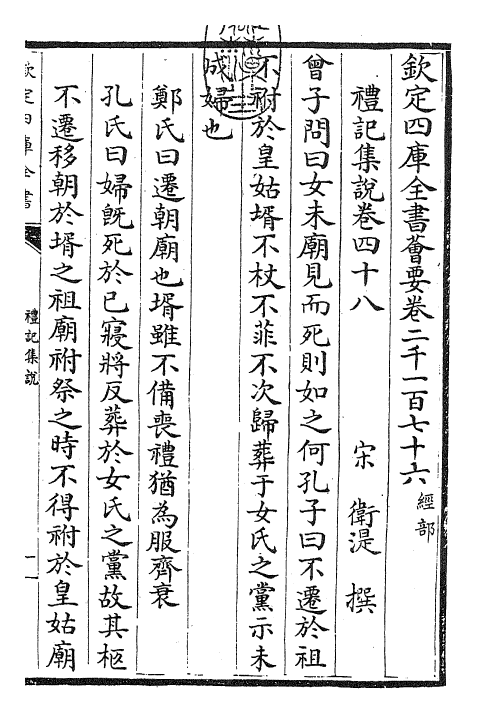 欽定四庫全書薈要卷二千一百七十六 經部
禮記集說卷四十八
宋 衛湜 撰
曾子問曰女未廟見而死則如之何孔子曰不遷於祖
不祔於皇姑壻不杖不菲不次歸葬于女氏之黨示未
成婦也
鄭氏曰遷朝廟也壻雖不備喪禮猶為服齊衰
孔氏曰婦旣死於已寢將反葬於女氏之黨故其柩
不遷移朝於壻之祖廟祔祭之時不得祔於皇姑廟
欽定四庫全書
禮記集說
一